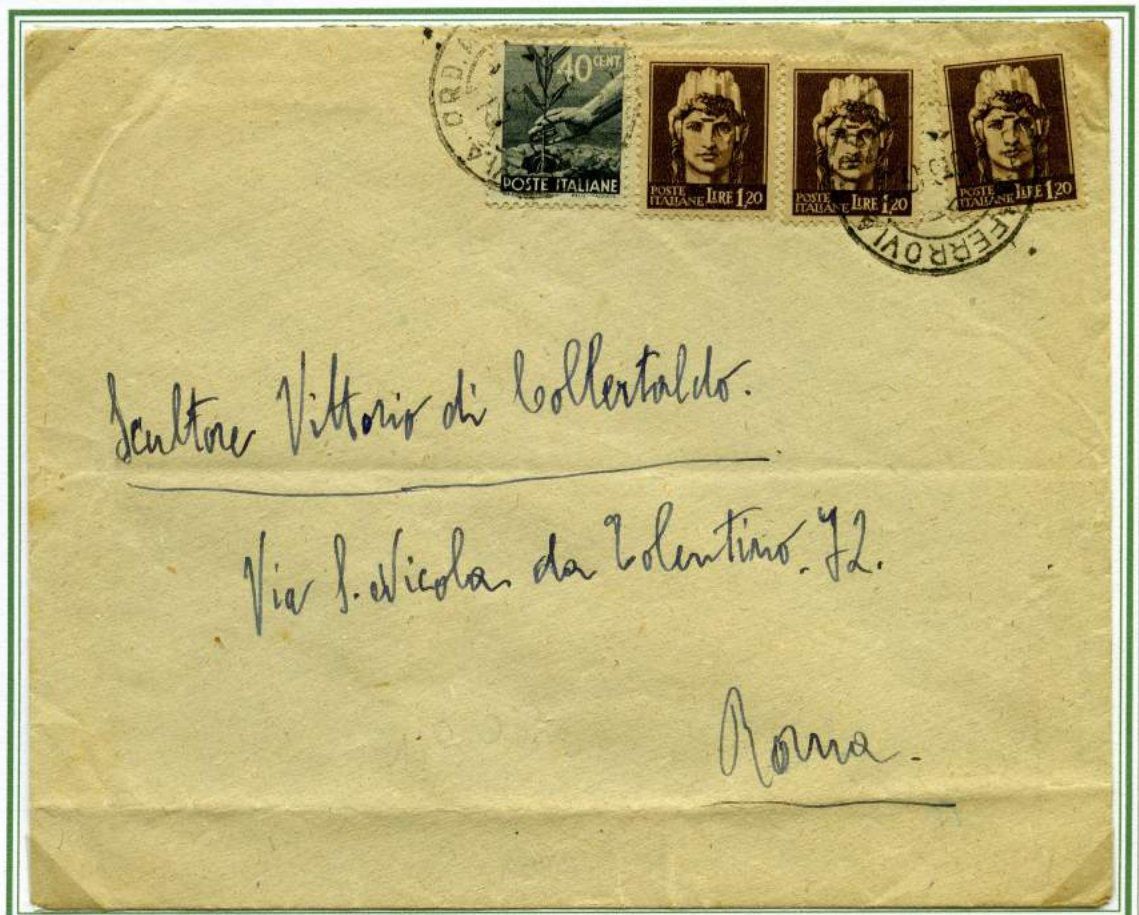 40 CENT.
POSTE ITALIANE
POSTE ITALIANE LIRE 1,20
POSTE ITALIANE LIRE 1,20
POSTE ITALIANE LIRE 1,20
ORD. A
FERROVIA
Scultore Vittorio di Colbertaldo.
Via S. Nicola da Tolentino. 72.
Roma.